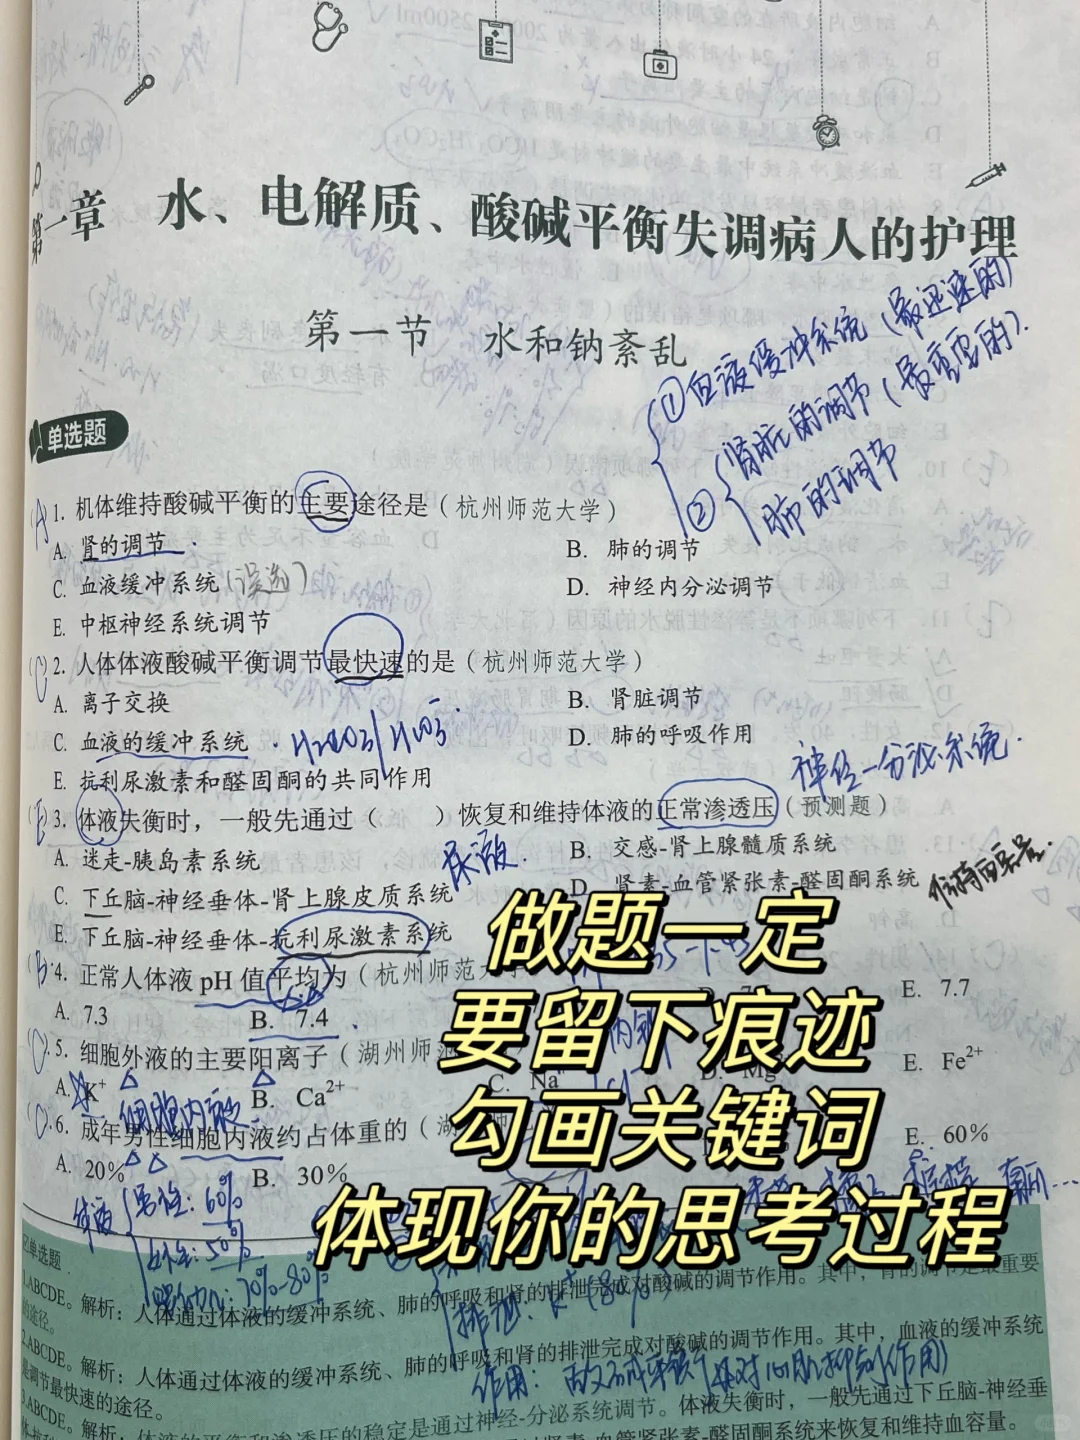 第一章 水、电解质、酸碱平衡失调病人的护理
第一节 水和钠紊乱
①血液缓冲系统（最迅速的）
②肾脏的调节（最重要的）.
肺的调节
单选题
(A) 1. 机体维持酸碱平衡的主要途径是（杭州师范大学）
A. 肾的调节 B. 肺的调节
C. 血液缓冲系统（误选） D. 神经内分泌调节
E. 中枢神经系统调节
(C) 2. 人体体液酸碱平衡调节最快速的是（杭州师范大学）
A. 离子交换 B. 肾脏调节
C. 血液的缓冲系统 · H2CO3/HCO3- D. 肺的呼吸作用
E. 抗利尿激素和醛固酮的共同作用
神经-分泌系统.
(E) 3. 体液失衡时，一般先通过（ ）恢复和维持体液的正常渗透压（预测题）
A. 迷走-胰岛素系统 尿液. B. 交感-肾上腺髓质系统
C. 下丘脑-神经垂体-肾上腺皮质系统 D. 肾素-血管紧张素-醛固酮系统 维持血容量.
E. 下丘脑-神经垂体-抗利尿激素系统
(B) 4. 正常人体液 pH 值平均为（杭州师范大
A. 7.3 B. 7.4 E. 7.7
(C) 5. 细胞外液的主要阳离子（湖州师范
A. K+ B. Ca2+ C. Na+ D. Mg E. Fe2+
细胞内液
(C) 6. 成年男性细胞内液约占体重的（湖
A. 20% B. 30% E. 60%
体液 男性：60%
女性：50%
婴幼儿：70%-80%
做题一定
要留下痕迹
勾画关键词
体现你的思考过程
单选题
1.ABCDE。解析：人体通过体液的缓冲系统、肺的呼吸和肾的排泄完成对酸碱的调节作用。其中，肾的调节是最重要
的途径。
排泄：K+（80%
2.ABCDE。解析：人体通过体液的缓冲系统、肺的呼吸和肾的排泄完成对酸碱的调节作用。其中，血液的缓冲系统
是调节最快速的途径。
作用：
3.ABCDE。解析：体液的平衡和渗透压的稳定是通过神经-分泌系统调节。体液失衡时，一般先通过下丘脑-神经垂
肾素-血管紧张素-醛固酮系统来恢复和维持血容量。